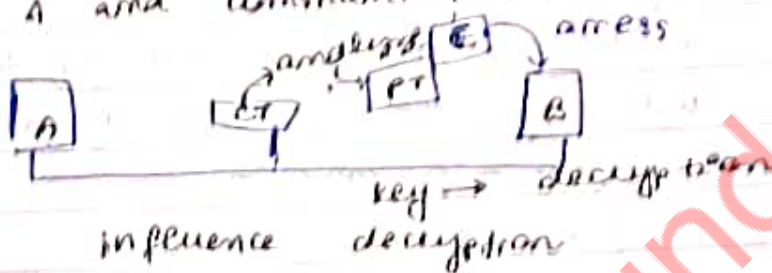 A and
analysis C access
A CT PT B
key → decryption
influence decryption